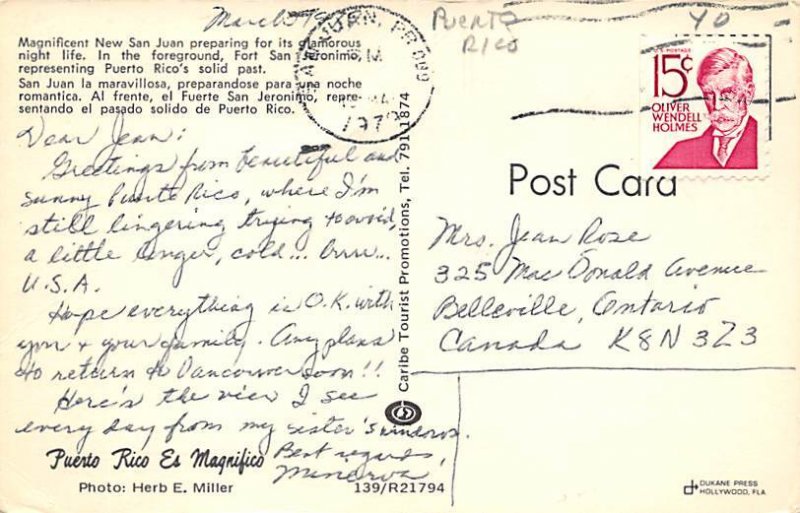 March
Magnificent New San Juan preparing for its glamorous
night life. In the foreground, Fort San Jeronimo,
representing Puerto Rico's solid past.
San Juan la maravillosa, preparandose para una noche
romantica. Al frente, el Fuerte San Jeronimo, repre-
sentando el pasado solido de Puerto Rico.
Dear Jean:
Greetings from beautiful and
sunny Puerto Rico, where I'm
still lingering trying to avoid,
a little longer, cold... brrr...
U.S.A.
Hope everything is O.K. with
you & your family. Any plans
to return to Vancouver soon!!
Here's the view I see
every day from my sister's windows.
Best regards,
Minerva
Puerto Rico Es Magnifico
Photo: Herb E. Miller
139/R21794
Caribe Tourist Promotions, Tel. 791-1874
SAN JUAN, PR 009
PM
PUERTO
RICO
40
U.S. POSTAGE
15¢
OLIVER
WENDELL
HOLMES
Post Card
Mrs. Jean Rose
325 MacDonald Avenue
Belleville, Ontario
Canada K8N 3Z3
DUKANE PRESS
HOLLYWOOD, FLA